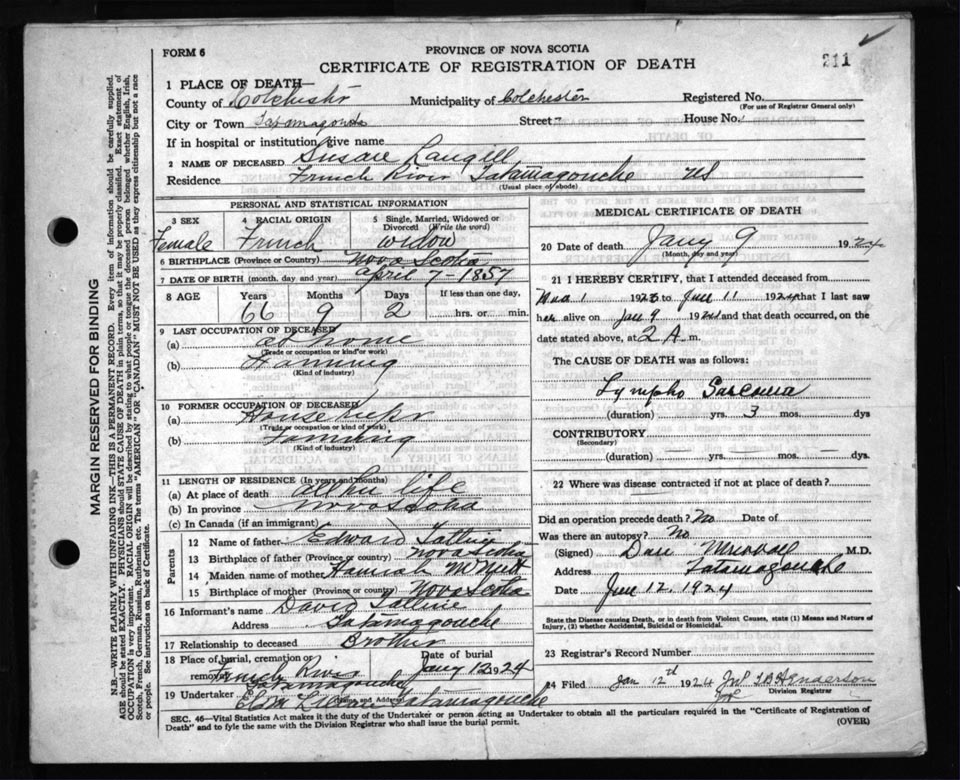 FORM 6
PROVINCE OF NOVA SCOTIA
CERTIFICATE OF REGISTRATION OF DEATH
211
1 PLACE OF DEATH—
County of Colchester Municipality of Colchester Registered No.
(For use of Registrar General only)
City or Town Tatamagouche Street House No.
If in hospital or institution, give name
2 NAME OF DECEASED Susan Langill
Residence French River Tatamagouche NS
(Usual place of abode)
PERSONAL AND STATISTICAL INFORMATION
3 SEX 4 RACIAL ORIGIN 5 Single, Married, Widowed or Divorced (Write the word)
Female French widow
6 BIRTHPLACE (Province or Country) Nova Scotia
7 DATE OF BIRTH (month, day, and year) April 7-1857
8 AGE Years Months Days If less than one day,
66 9 2 hrs. or min.
9 LAST OCCUPATION OF DECEASED
(a) at home
(Trade or occupation or kind of work)
(b) Farming
(Kind of industry)
10 FORMER OCCUPATION OF DECEASED
(a) Housekeeper
(Trade or occupation or kind of work)
(b) Farming
(Kind of industry)
11 LENGTH OF RESIDENCE (In years and months)
(a) At place of death all her life
(b) In province Nova Scotia
(c) In Canada (if an immigrant)
Parents
12 Name of father Edward
13 Birthplace of father (Province or country) Nova Scotia
14 Maiden name of mother Hannah McNutt
15 Birthplace of mother (Province or country) Nova Scotia
16 Informant's name David
Address Tatamagouche
17 Relationship to deceased Brother
18 Place of burial, cremation or removal French River Tatamagouche
Date of burial Jany 12 1924
19 Undertaker Tatamagouche
Address
MEDICAL CERTIFICATE OF DEATH
20 Date of death Jany 9 1924
(Month, day and year)
21 I HEREBY CERTIFY, that I attended deceased from
1 1923 to 11 1924 that I last saw
her alive on Jan 9 1924 and that death occurred, on the
date stated above, at 2 A. m.
The CAUSE OF DEATH was as follows:
Lympho Sarcoma
(duration) yrs. 3 mos. dys
CONTRIBUTORY
(Secondary)
(duration) yrs. mos. dys
22 Where was disease contracted if not at place of death?
Did an operation precede death? No Date of
Was there an autopsy? No
(Signed) Dan Murray M.D.
Address Tatamagouche
Date 12 1924
State the Disease causing Death, or in death from Violent Causes, state (1) Means and Nature of Injury, (2) whether Accidental, Suicidal or Homicidal.
23 Registrar's Record Number
24 Filed Jan 12th 1924 Henderson
Division Registrar
SEC. 46—Vital Statistics Act makes it the duty of the Undertaker or person acting as Undertaker to obtain all the particulars required in the "Certificate of Registration of
Death" and to fyle the same with the Division Registrar who shall issue the burial permit. (OVER)
MARGIN RESERVED FOR BINDING
N.B.—WRITE PLAINLY WITH UNFADING INK—THIS IS A PERMANENT RECORD. Every item of information should be carefully supplied.
AGE should be stated EXACTLY. PHYSICIANS should STATE CAUSE OF DEATH in plain terms, so that it may be properly classified. Exact statement of
OCCUPATION is very important. RACIAL ORIGIN will be described by stating to what people or tongue the deceased person belonged, whether English, Irish,
Scotch, French, German, Russian, Ruthenian, etc. The terms "AMERICAN" OR "CANADIAN" MUST NOT BE USED as they express citizenship but not a race
or people. See instructions on back of Certificate.